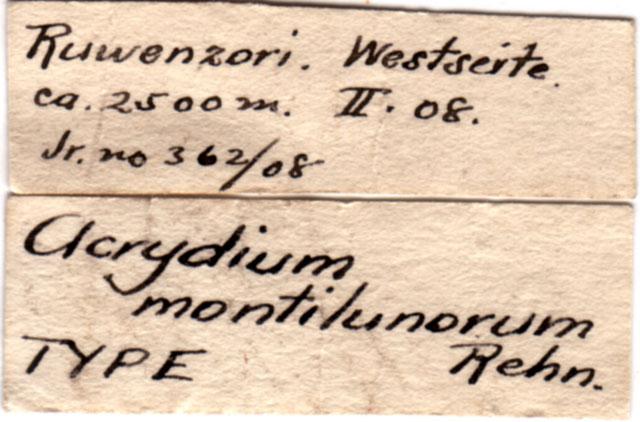 Ruwenzori. Westseite.
ca. 2500 m. II. 08.
Jr. no 362/08
Acrydium
montilunorum
TYPE Rehn.